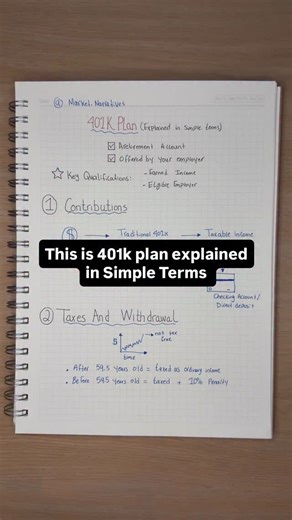 @ Market.Narratives
401K Plan (Explained in simple terms)
☑ Retirement Account
☑ Offered by your employer
☆ Key Qualifications: - Earned Income
- Eligible Employer
1 Contributions
$ → Traditional 401k → Taxable Income
This is 401k plan explained
in Simple Terms
Checking Account/
Direct deposit
2 Taxes And Withdrawal
$
not tax
free
time
• After 59.5 years old = taxed as ordinary income
• Before 59.5 years old = taxed + 10% Penalty